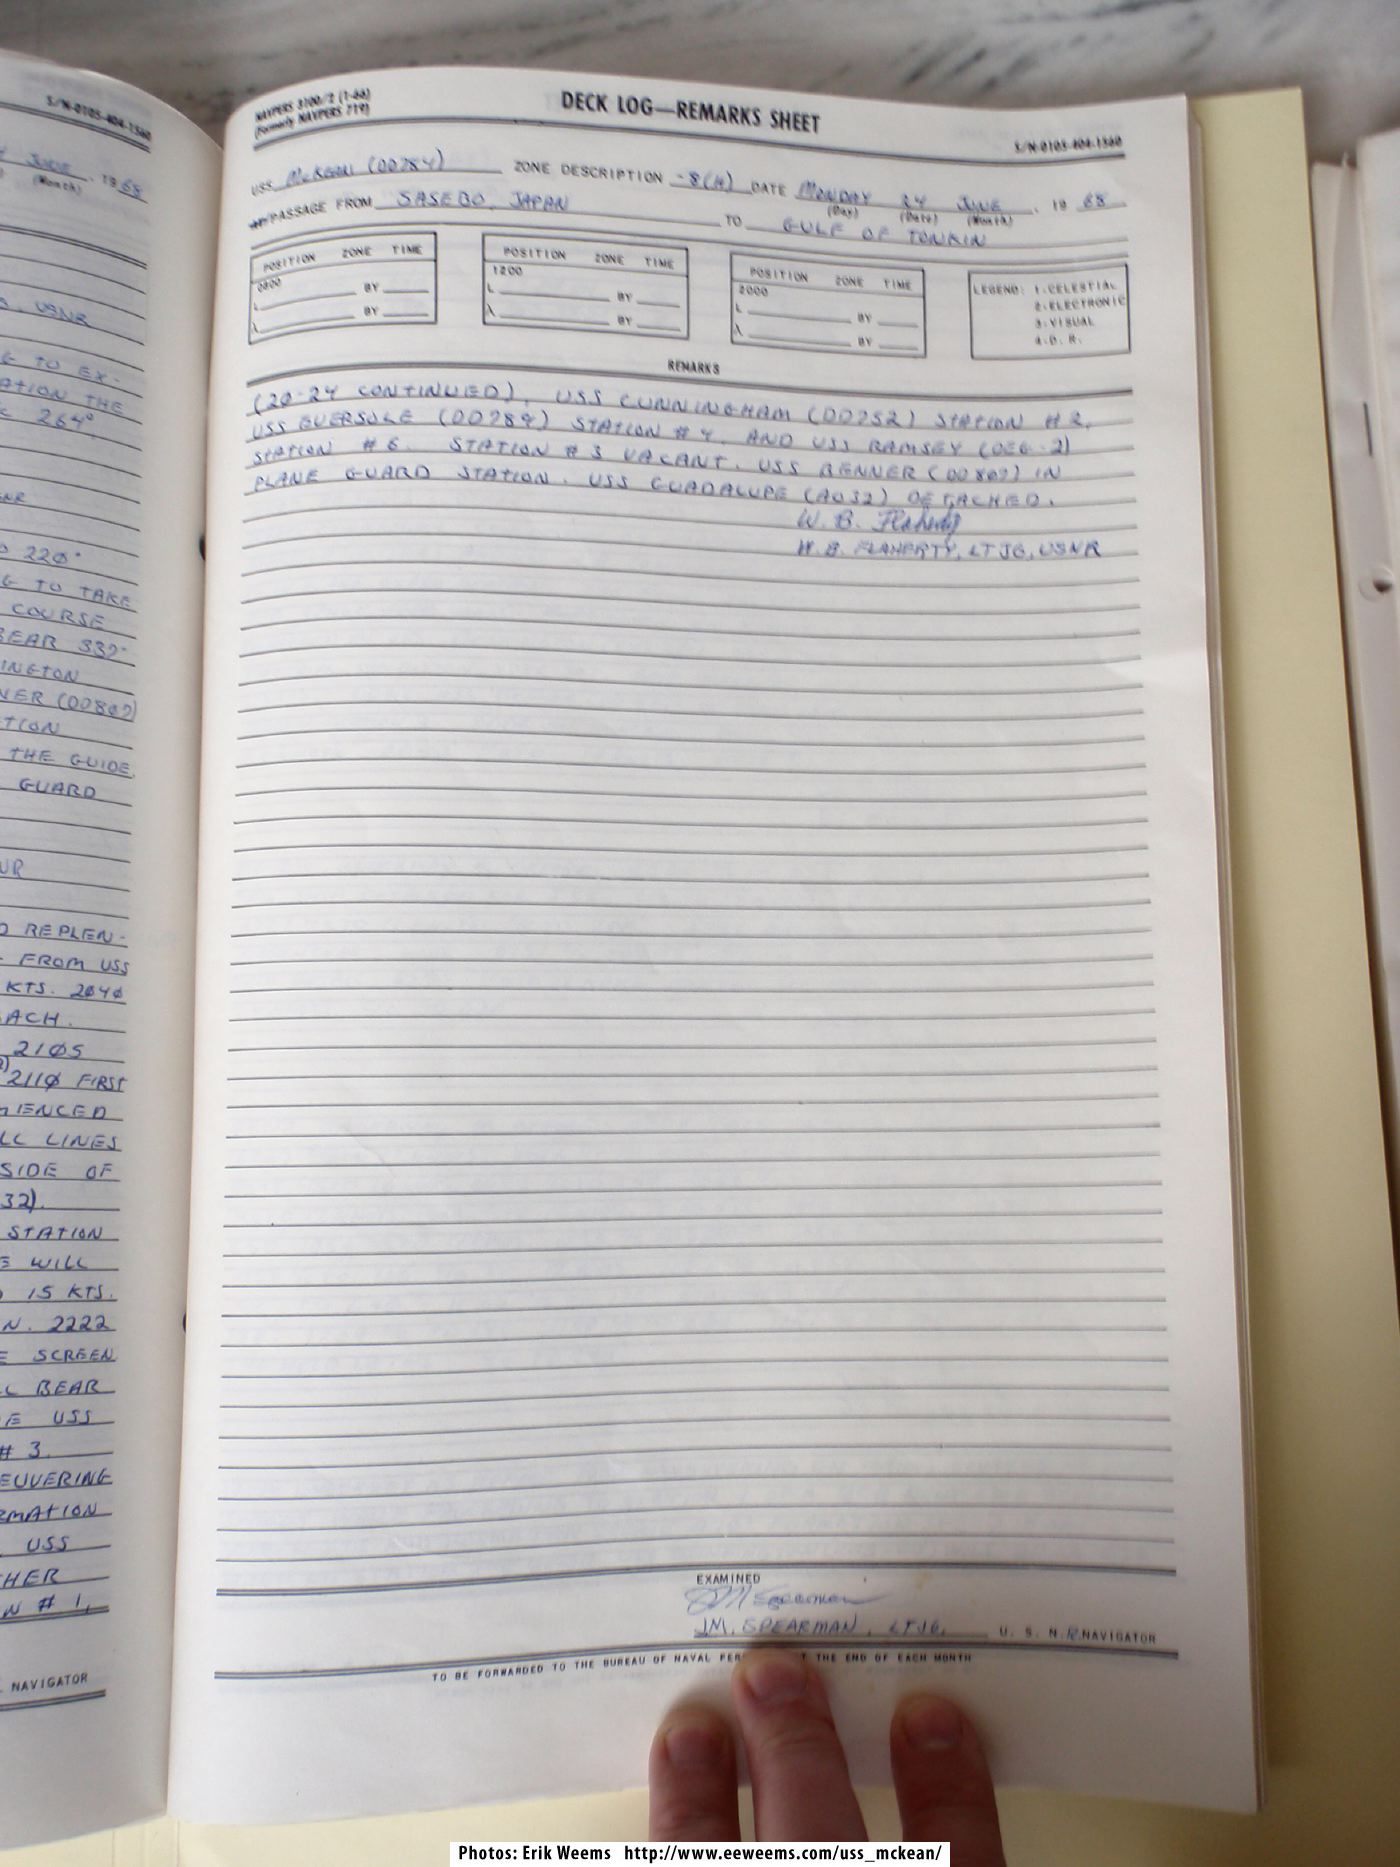 S/N-0105-404-1560
JUNE, 19 68
(Month)
USNR
G TO EX-
ATION THE
264°
NR
220°
G TO TAKE
COURSE
BEAR 337°
INGTON
NER (DD807)
TION
THE GUIDE.
GUARD
UR
REPLEN-
FROM USS
KTS. 2040
ACH.
2105
2110 FIRST
MENCED
LL LINES
SIDE OF
32).
STATION
E WILL
15 KTS.
N. 2222
E SCREEN
L BEAR
E USS
# 3.
EUVERING
RMATION
USS
HER
N # 1,
NAVIGATOR
NAVPERS 3100/2 (1-66)
(Formerly NAVPERS 719)
DECK LOG—REMARKS SHEET
S/N-0105-404-1560
USS McKEAN (DD784) ZONE DESCRIPTION -8(H) DATE MONDAY 24 JUNE, 19 68
(Day) (Date) (Month)
PASSAGE FROM SASEBO, JAPAN TO GULF OF TONKIN
POSITION ZONE TIME
0800
L BY
λ BY
POSITION ZONE TIME
1200
L BY
λ BY
POSITION ZONE TIME
2000
L BY
λ BY
LEGEND: 1-CELESTIAL
2-ELECTRONIC
3-VISUAL
4-D. R.
REMARKS
(20-24 CONTINUED), USS CUNNINGHAM (DD752) STATION # 2,
USS EVERSOLE (DD789) STATION # 4, AND USS RAMSEY (DEG-2)
STATION # 6. STATION # 3 VACANT. USS RENNER (DD807) IN
PLANE GUARD STATION. USS GUADALUPE (AO32) DETACHED.
W. B. Flaherty
W. B. FLAHERTY, LTJG, USNR
EXAMINED
JM Spearman
J.M. SPEARMAN, LTJG, U. S. N. R. NAVIGATOR
TO BE FORWARDED TO THE BUREAU OF NAVAL PER T THE END OF EACH MONTH
Photos: Erik Weems http://www.eeweems.com/uss_mckean/